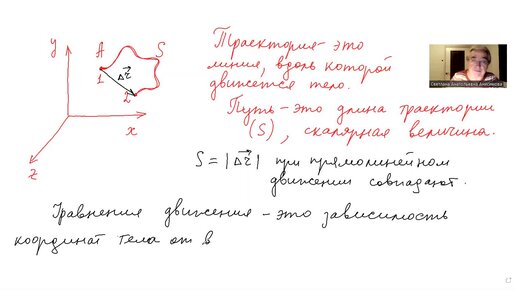 y
A
S
1
Δr
2
x
z
Траектория - это
линия, вдоль которой
движется тело.
Путь - это длина траектории
(S), скалярная величина.
S = |Δr| при прямолинейном
движении совпадают.
Уравнения движения - это зависимость
координат тела от в